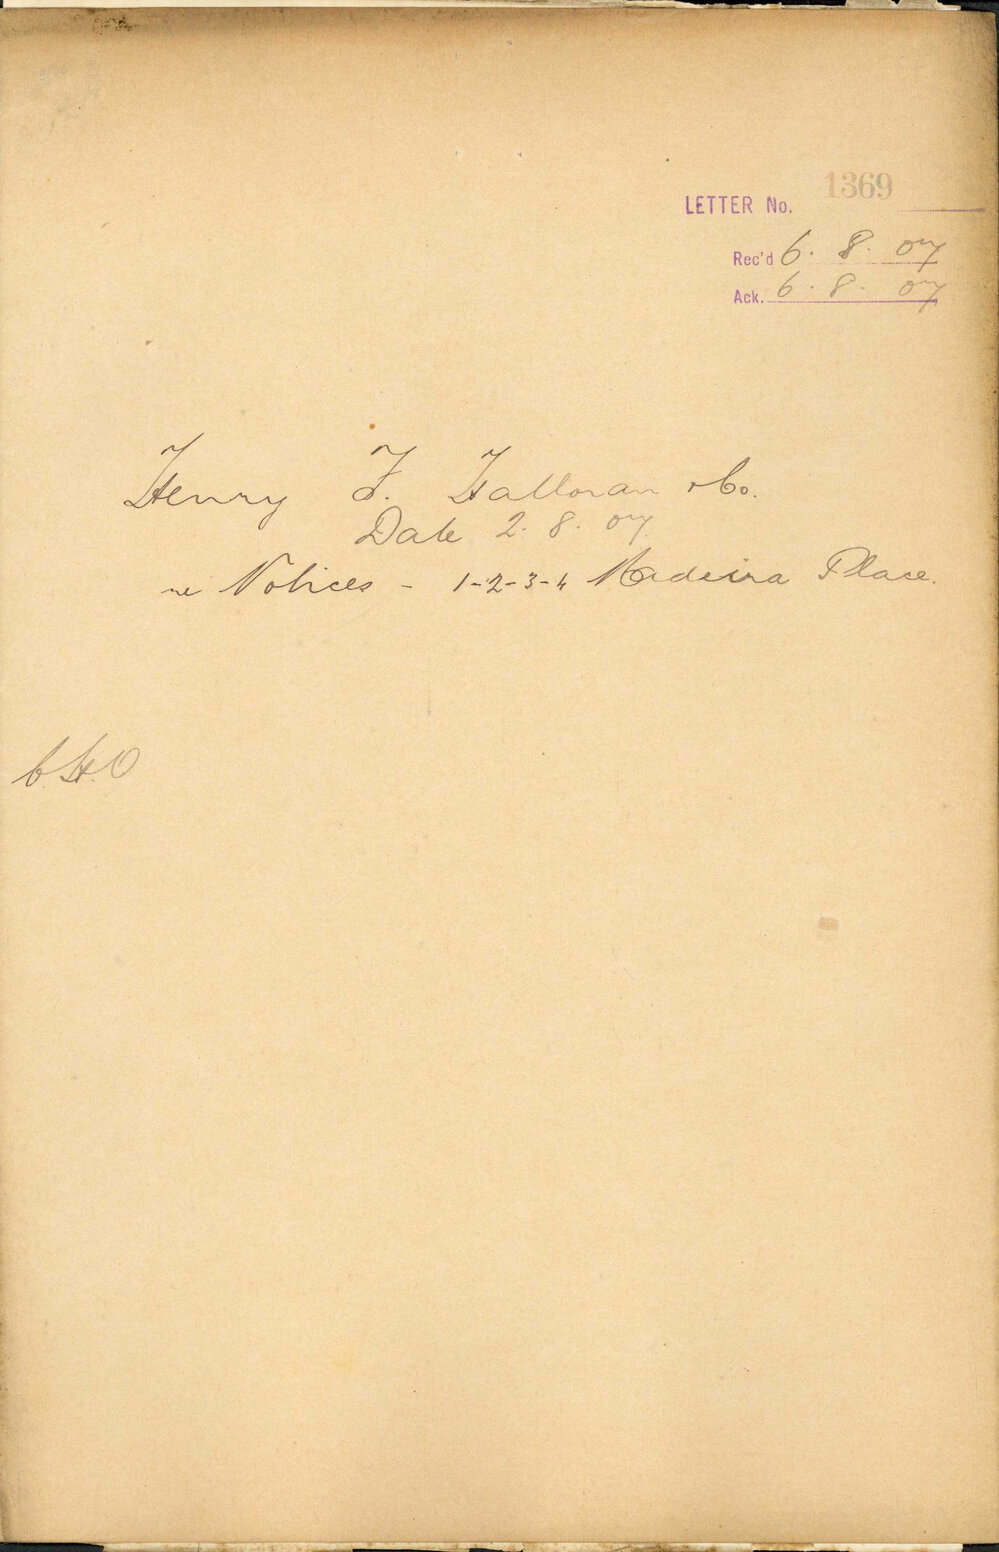 LETTER No. 1369
Rec'd 6. 8. 07
Ack. 6. 8. 07
Henry F. Halloran & Co.
Date 2. 8. 07.
re Notices - 1-2-3-4 Madeira Place.
C.H.O